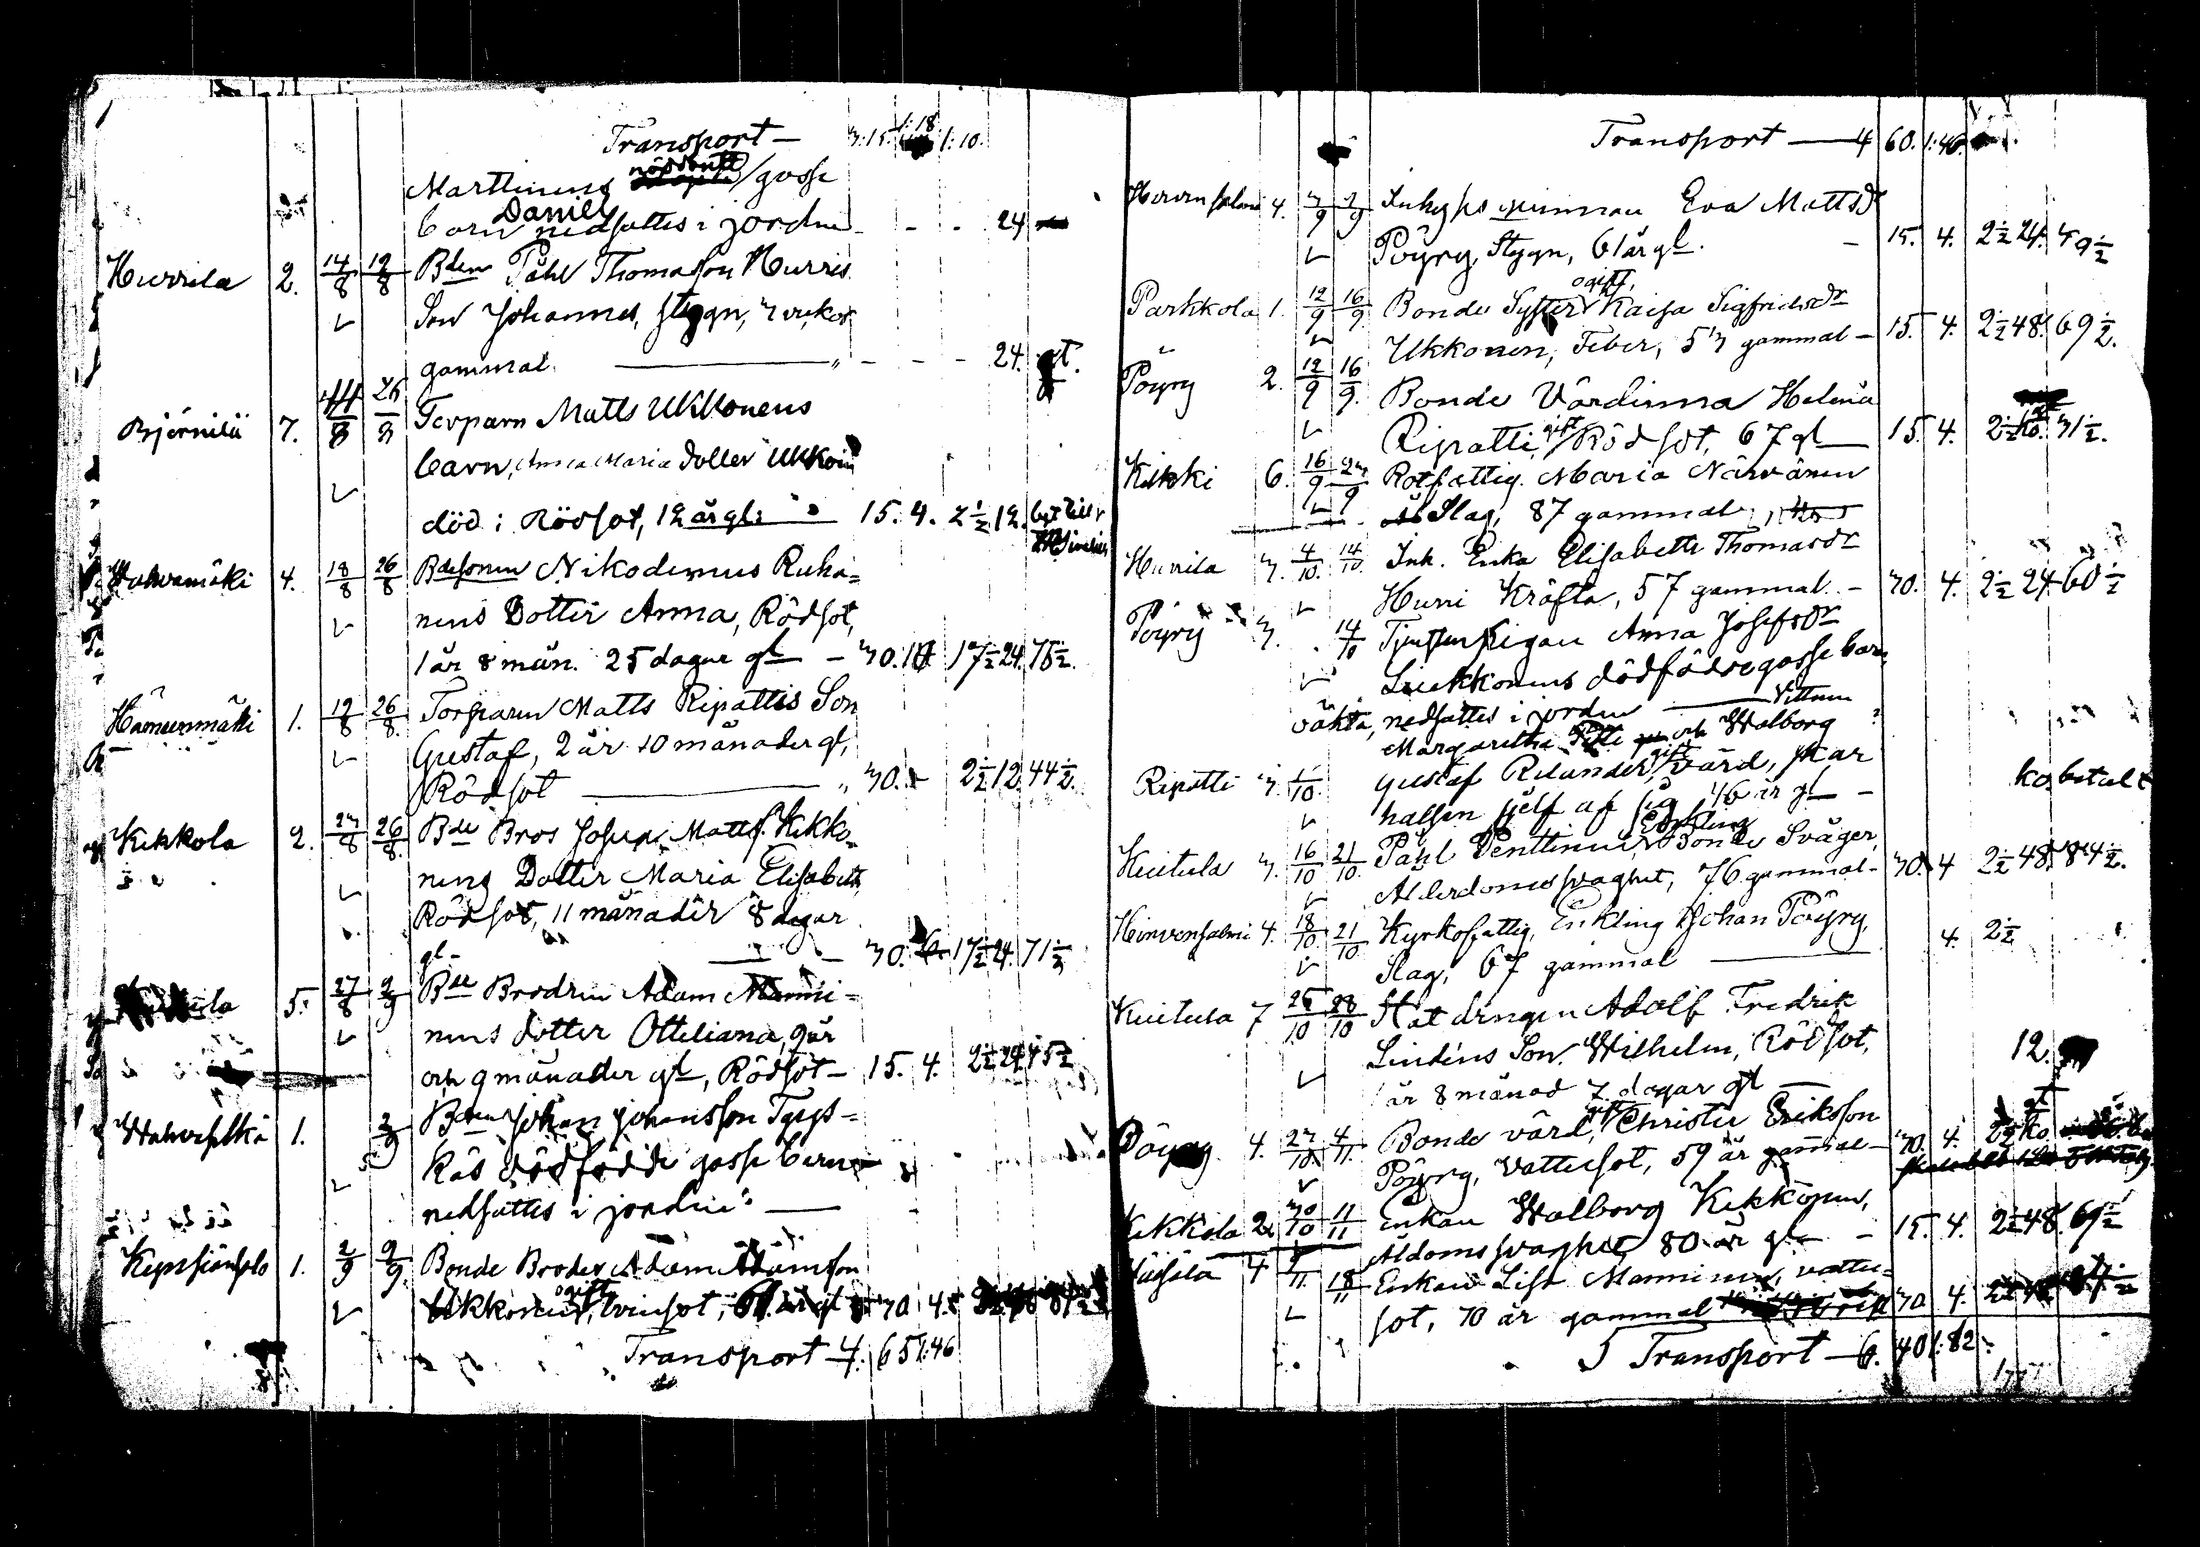 Transport —
1:18
1:10.
Marttinens nöddöpte gosse
barn Daniel nedsattes i jorden - - - 24
Hurrila 2. 14/8 19/8 Bden Påhl Thomasson Hurris
Son Johannes, slagn, 7 veckor
gammal — " - - - 24. gt.
Björnilä 7. 26/8 Torparn Matts Ukkonens
barn, Anna Maria dotter
död i Rödsot, 12 år gl: 15. 4. 2 1/2 12.
Wahvamäki 4. 18/8 26/8 Bdesonen Nikodemus Ruha=
nens Dotter Anna, Rödsot,
1 år 8 mån. 25 dagar gl — 30. 17 1/2 24. 75 1/2.
Hämeenmäki 1. 19/8 26/8 Torparen Matts Ripattis Son
Gustaf, 2 år 10 månader gl,
Rödsot — " 30. 2 1/2 12. 44 1/2.
Kekkola 2. 27/8 26/8 Bde Bros Josep Matts. Kekko=
nens Dotter Maria Elisabeth,
Rödsot, 11 månader 8 dagar
gl - — 30. 17 1/2 24. 71 1/2
5. 27/8 2/9 Bde Brodren Adam Manni=
nens dotter Otteliana, 9 år
och 9 månader gl, Rödsot — 15. 4. 2 1/2 24 45 1/2
1. 2/9 Bden Johan Johansson Tyys=
käs dödfödde gosse barn
nedsattes i jorden. —
1. 2/9 9/9 Bonde Broder Adam Adamson
Ukkonen, ogift, 30 4.
Transport — 4. 65 1:46
Transport — 4 60. 1:46.
Hirvensalmi 4. 3/9 9/9 Inhyses qvinnan Eva Mattsdr
Pöyry, Slagn, 61 år gl. — 15. 4. 2 1/2 24. 49 1/2
Parkkola 1. 12/9 16/9 Bonde Syster ogift, Kaisa Sigfridsdr
Ukkonen, Feber, 57 gammal — 15. 4. 2 1/2 48. 69 1/2.
Pöyry 2. 12/9 16/9. Bonde Värdinna Helena
Ripatti, gift Rödsot, 67 gl — 15. 4. 2 1/2 ko. 31 1/2.
Kekki 6. 16/9 27/9 Rotfattig. Maria Närvänen
Slag, 87 gammal
Hurrila 7. 4/10. 14/10. Inh. Enka Elisabeth Thomasdr
Hurri Kräfta, 57 gammal. - 30. 4. 2 1/2 24 60 1/2
Pöyry 7. 14/10 Tjenstepigan Anna Josefsdr
Liukkonens dödfödde gosse barn,
oäkta, nedsattes i jorden — Vittnen
Margaretha och Walborg
Ripatti 7. 1/10. Gustaf Relander, gift värd, skar
halsen sjelf af sig 46 år gl — - ko. betalt
Kuitula 7. 16/10 21/10. Påhl Penttinen, Enkling Bonde Svåger,
Ålderdomssvaghet, 76 gammal - 30. 4 2 1/2 48. 84 1/2.
Hirvensalmi 4. 18/10 21/10 Kyrkofattig, Enkling Johan Pöyry,
Slag, 67 gammal — 4. 2 1/2
Kuitula 7 25/10 28/10 Statdrngen Adolf Fredrik
Lindéns Son Wilhelm, Rödsot,
1 år 8 månad 7 dagar gl — 12.
Pöyry 4. 27/10. 4/11. Bonde värd, gift Christer Eriksson
Pöyry, Vattusot, 59 år gammal — 30. 4. 2 1/2 ko
Kekkola 2 30/10 11/11 Enkan Walborg Kekkonen,
Åldomssvaghet 80 år gl — - 15. 4. 2 1/2 48. 69 1/2
4 18/11 Enkan Lisa Manninen, vattu=
sot, 70 år gammal 30 4.
Transport — 6. 40 1:82